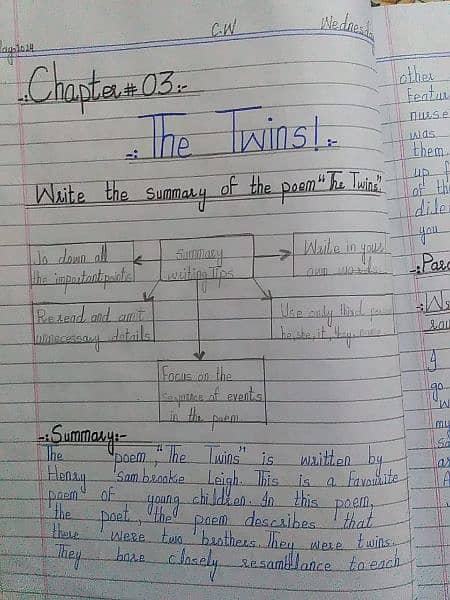 C.W
Wednesda
May-2024
-:Chapter# 03:-
-: The Twins! :-
Write the summary of the poem "The Twins"
Jo down all
the important points
Summary
writing Tips
Write in your
own words.
Reread and omit
unnecessary details
Use only third
he, she, it, they,
Focus on the
sequence of events
in the poem
-:Summary:-
The poem, "The Twins" is written by
Henry Sambrooke Leigh. This is a favourite
poem of young children. In this poem,
the poet, the poem describes that
there were two brothers. They were twins.
They bore closely resamblance to each
other
Featu
nurse
was
them.
up f
of th
dile
you
-:Para
-:W
I
go
w
my
so
as
A